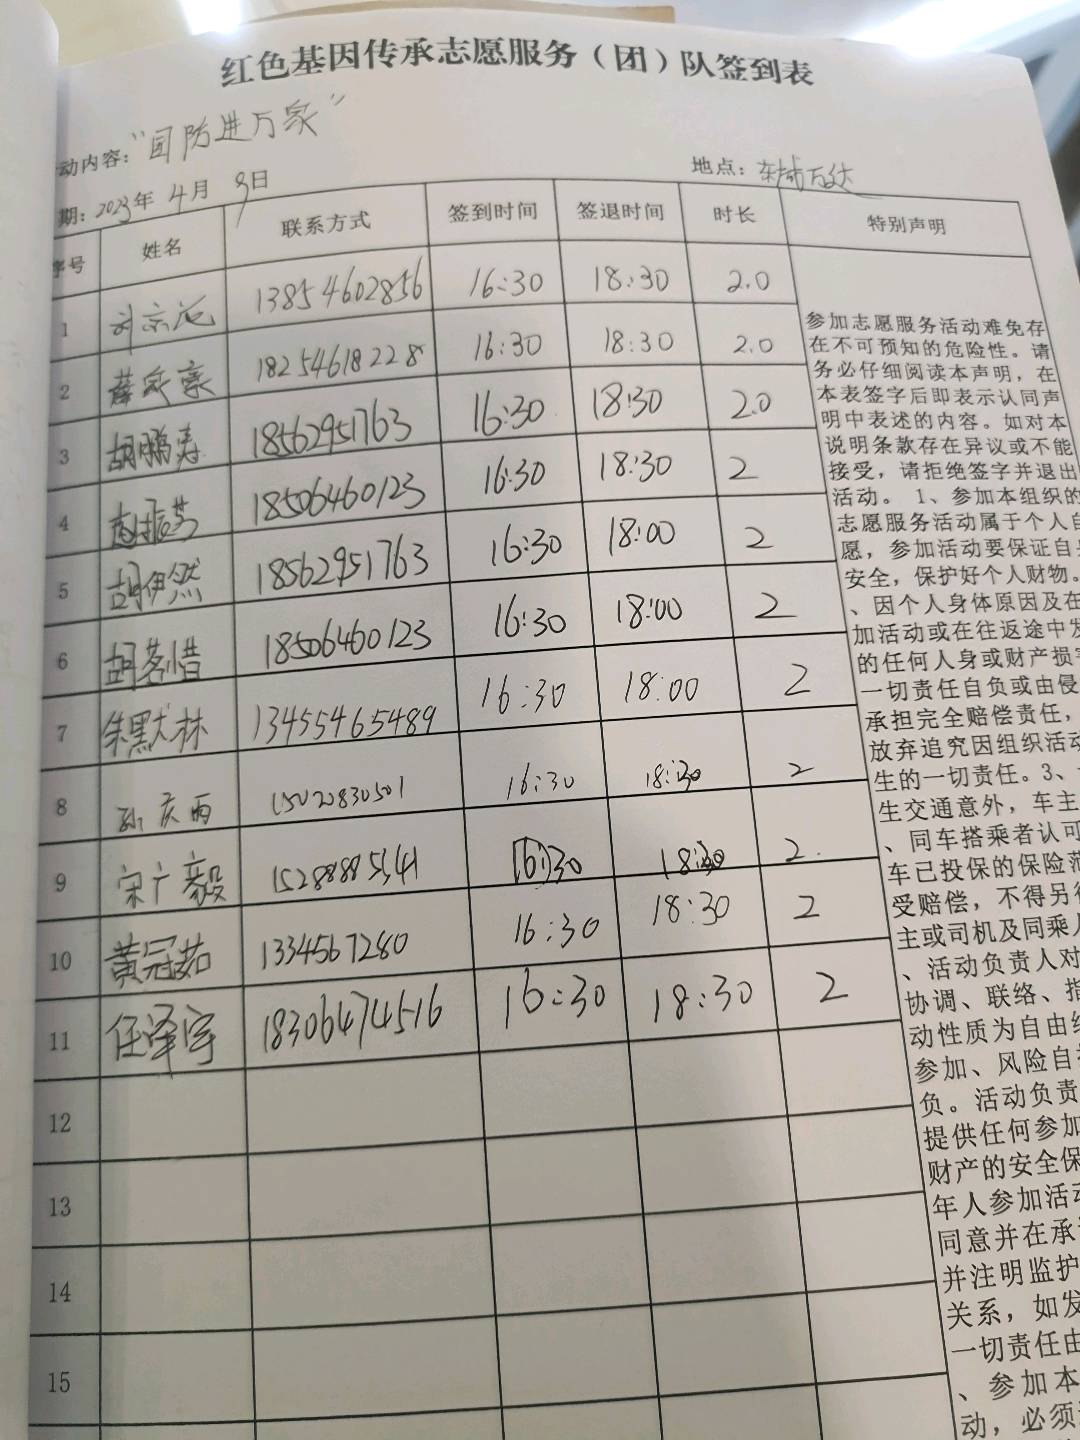 红色基因传承志愿服务（团）队签到表
动内容：“国防进万家”
期：2023年 4月 9日 地点：东城万达
序号 姓名 联系方式 签到时间 签退时间 时长 特别声明
1 13854602856 16:30 18:30 2.0
2 薛家豪 18254618228 16:30 18:30 2.0
3 胡鹏寿 18562951763 16:30 18:30 2.0
4 18506460123 16:30 18:30 2
5 胡伊然 18562951763 16:30 18:00 2
6 胡茗惜 18506460123 16:30 18:00 2
7 朱默林 13455465489 16:30 18:00 2
8 孙庆雨 15020830501 16:30 18:30 2
9 宋广毅 15288885541 16:30 18:30 2
10 黄冠茹 13345467280 16:30 18:30 2
11 任泽宇 18306474516 16:30 18:30 2
12
13
14
15
参加志愿服务活动难免存
在不可预知的危险性。请
务必仔细阅读本声明，在
本表签字后即表示认同声
明中表述的内容。如对本
说明条款存在异议或不能
接受，请拒绝签字并退出
活动。1、参加本组织的
志愿服务活动属于个人自
愿，参加活动要保证自身
安全，保护好个人财物。
、因个人身体原因及在
加活动或在往返途中发
的任何人身或财产损害
一切责任自负或由侵
承担完全赔偿责任，
放弃追究因组织活动
生的一切责任。3、
生交通意外，车主
、同车搭乘者认可
车已投保的保险范
受赔偿，不得另行
主或司机及同乘人
、活动负责人对
协调、联络、指
动性质为自由组
参加、风险自担
负。活动负责
提供任何参加
财产的安全保
年人参加活动
同意并在承诺
并注明监护
关系，如发
一切责任由
、参加本
动，必须